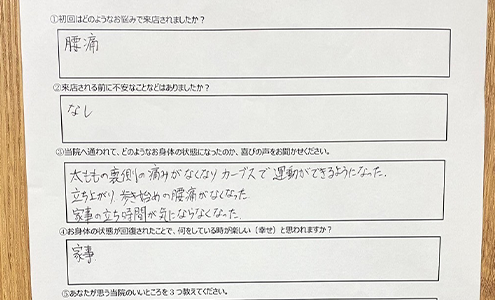 ①初回はどのようなお悩みで来店されましたか？
腰痛
②来店される前に不安なことなどはありましたか？
なし
③当院へ通われて、どのようなお身体の状態になったのか、喜びの声をお聞かせください。
太ももの裏側の痛みがなくなり カーブスで運動ができるようになった.
立ち上がり 歩き始めの腰痛がなくなった
家事の立ち時間が気にならなくなった
④お身体の状態が回復されたことで、何をしている時が楽しい（幸せ）と思われますか？
家事
⑤あなたが思う当院のいいところを３つ教えてください。